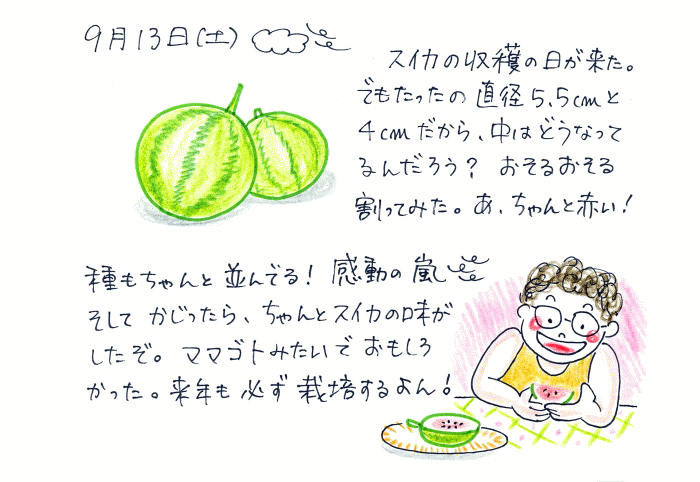 9月13日(土)
スイカの収穫の日が来た。
でもたったの直径5.5cmと
4cmだから、中はどうなって
るんだろう？ おそるおそる
割ってみた。あ、ちゃんと赤い！
種もちゃんと並んでる！ 感動の嵐
そして かじったら、ちゃんとスイカの味が
したぞ。ママゴトみたいで おもしろ
かった。来年も必ず栽培するよん！